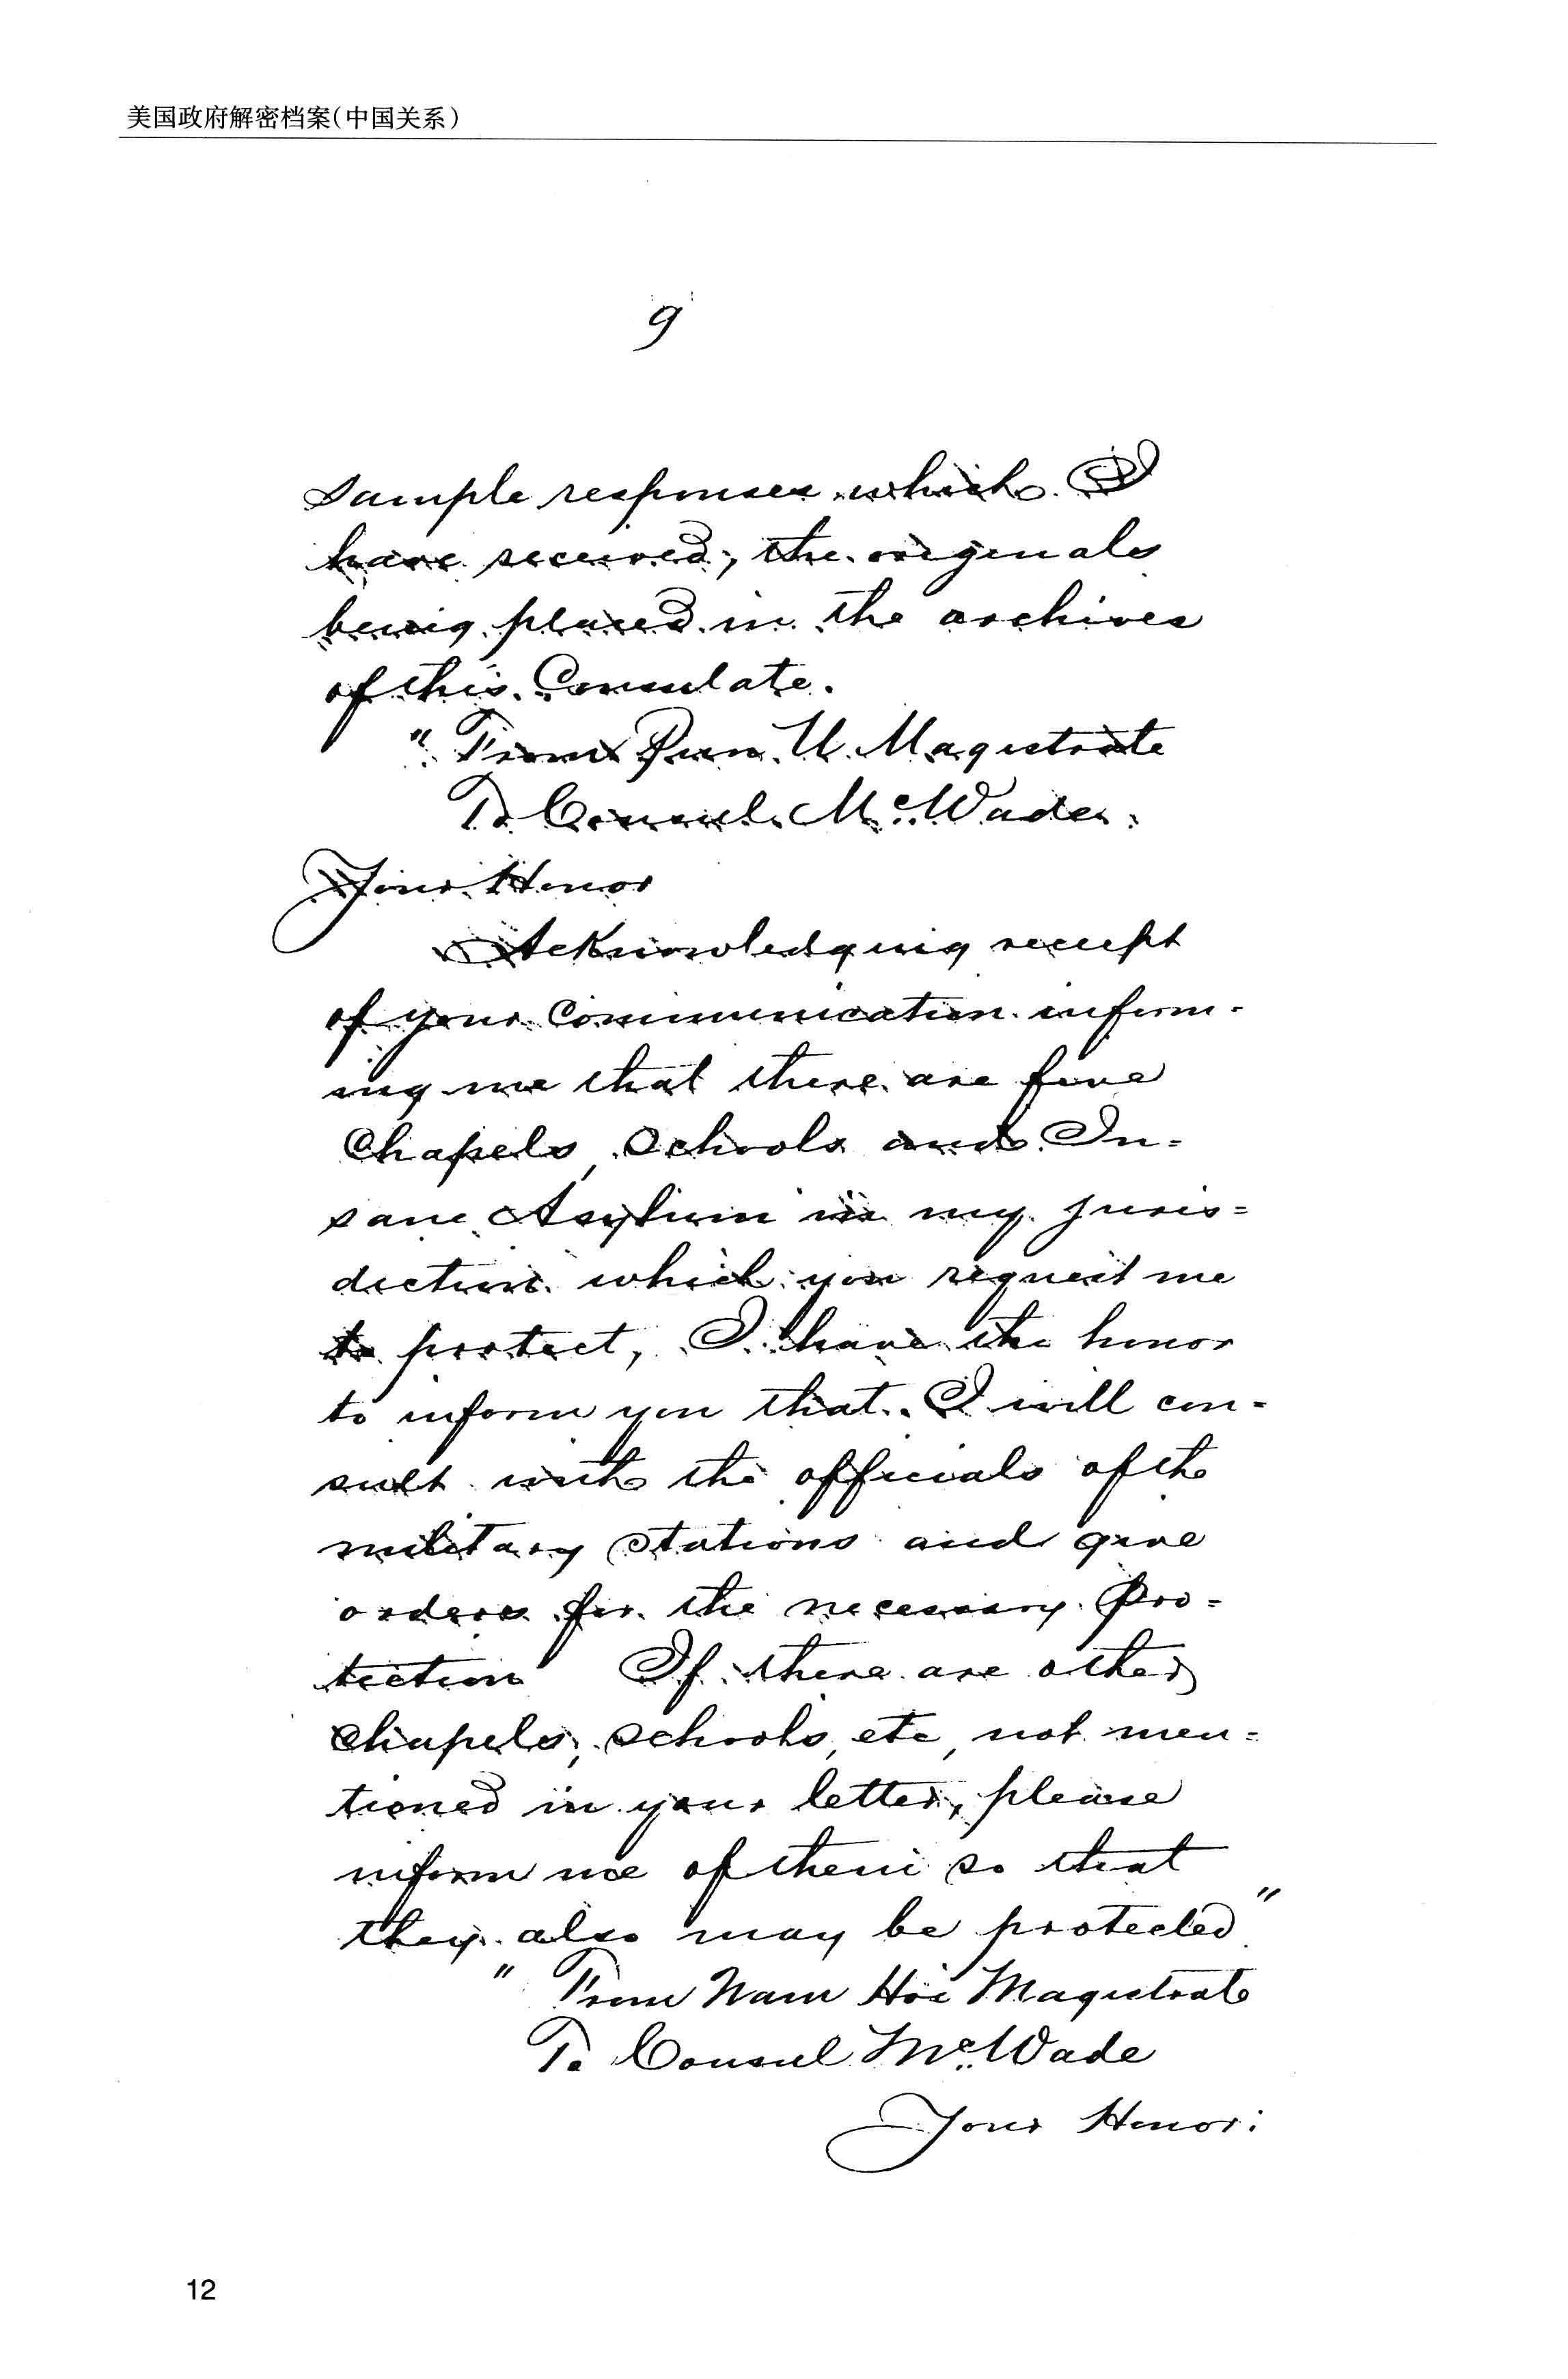 美国政府解密档案(中国关系)
9
sample responses which I
have received; the originals
being placed in the archives
of this Consulate.
"From Pun U. Magistrate
To Consul McWade.
Your Honor
Acknowledging receipt
of your Communication inform-
ing me that there are five
Chapels, Schools and In-
sane Asylum in my juris-
diction which you request me
to protect, I have the honor
to inform you that I will con-
sult with the officials of the
military stations and give
orders for the necessary Pro-
tection If there are other
Chapels, Schools, etc, not men-
tioned in your letter, please
inform me of them so that
they also may be protected"
"From Nam Hoi Magistrate
To Consul McWade
Your Honor:
12